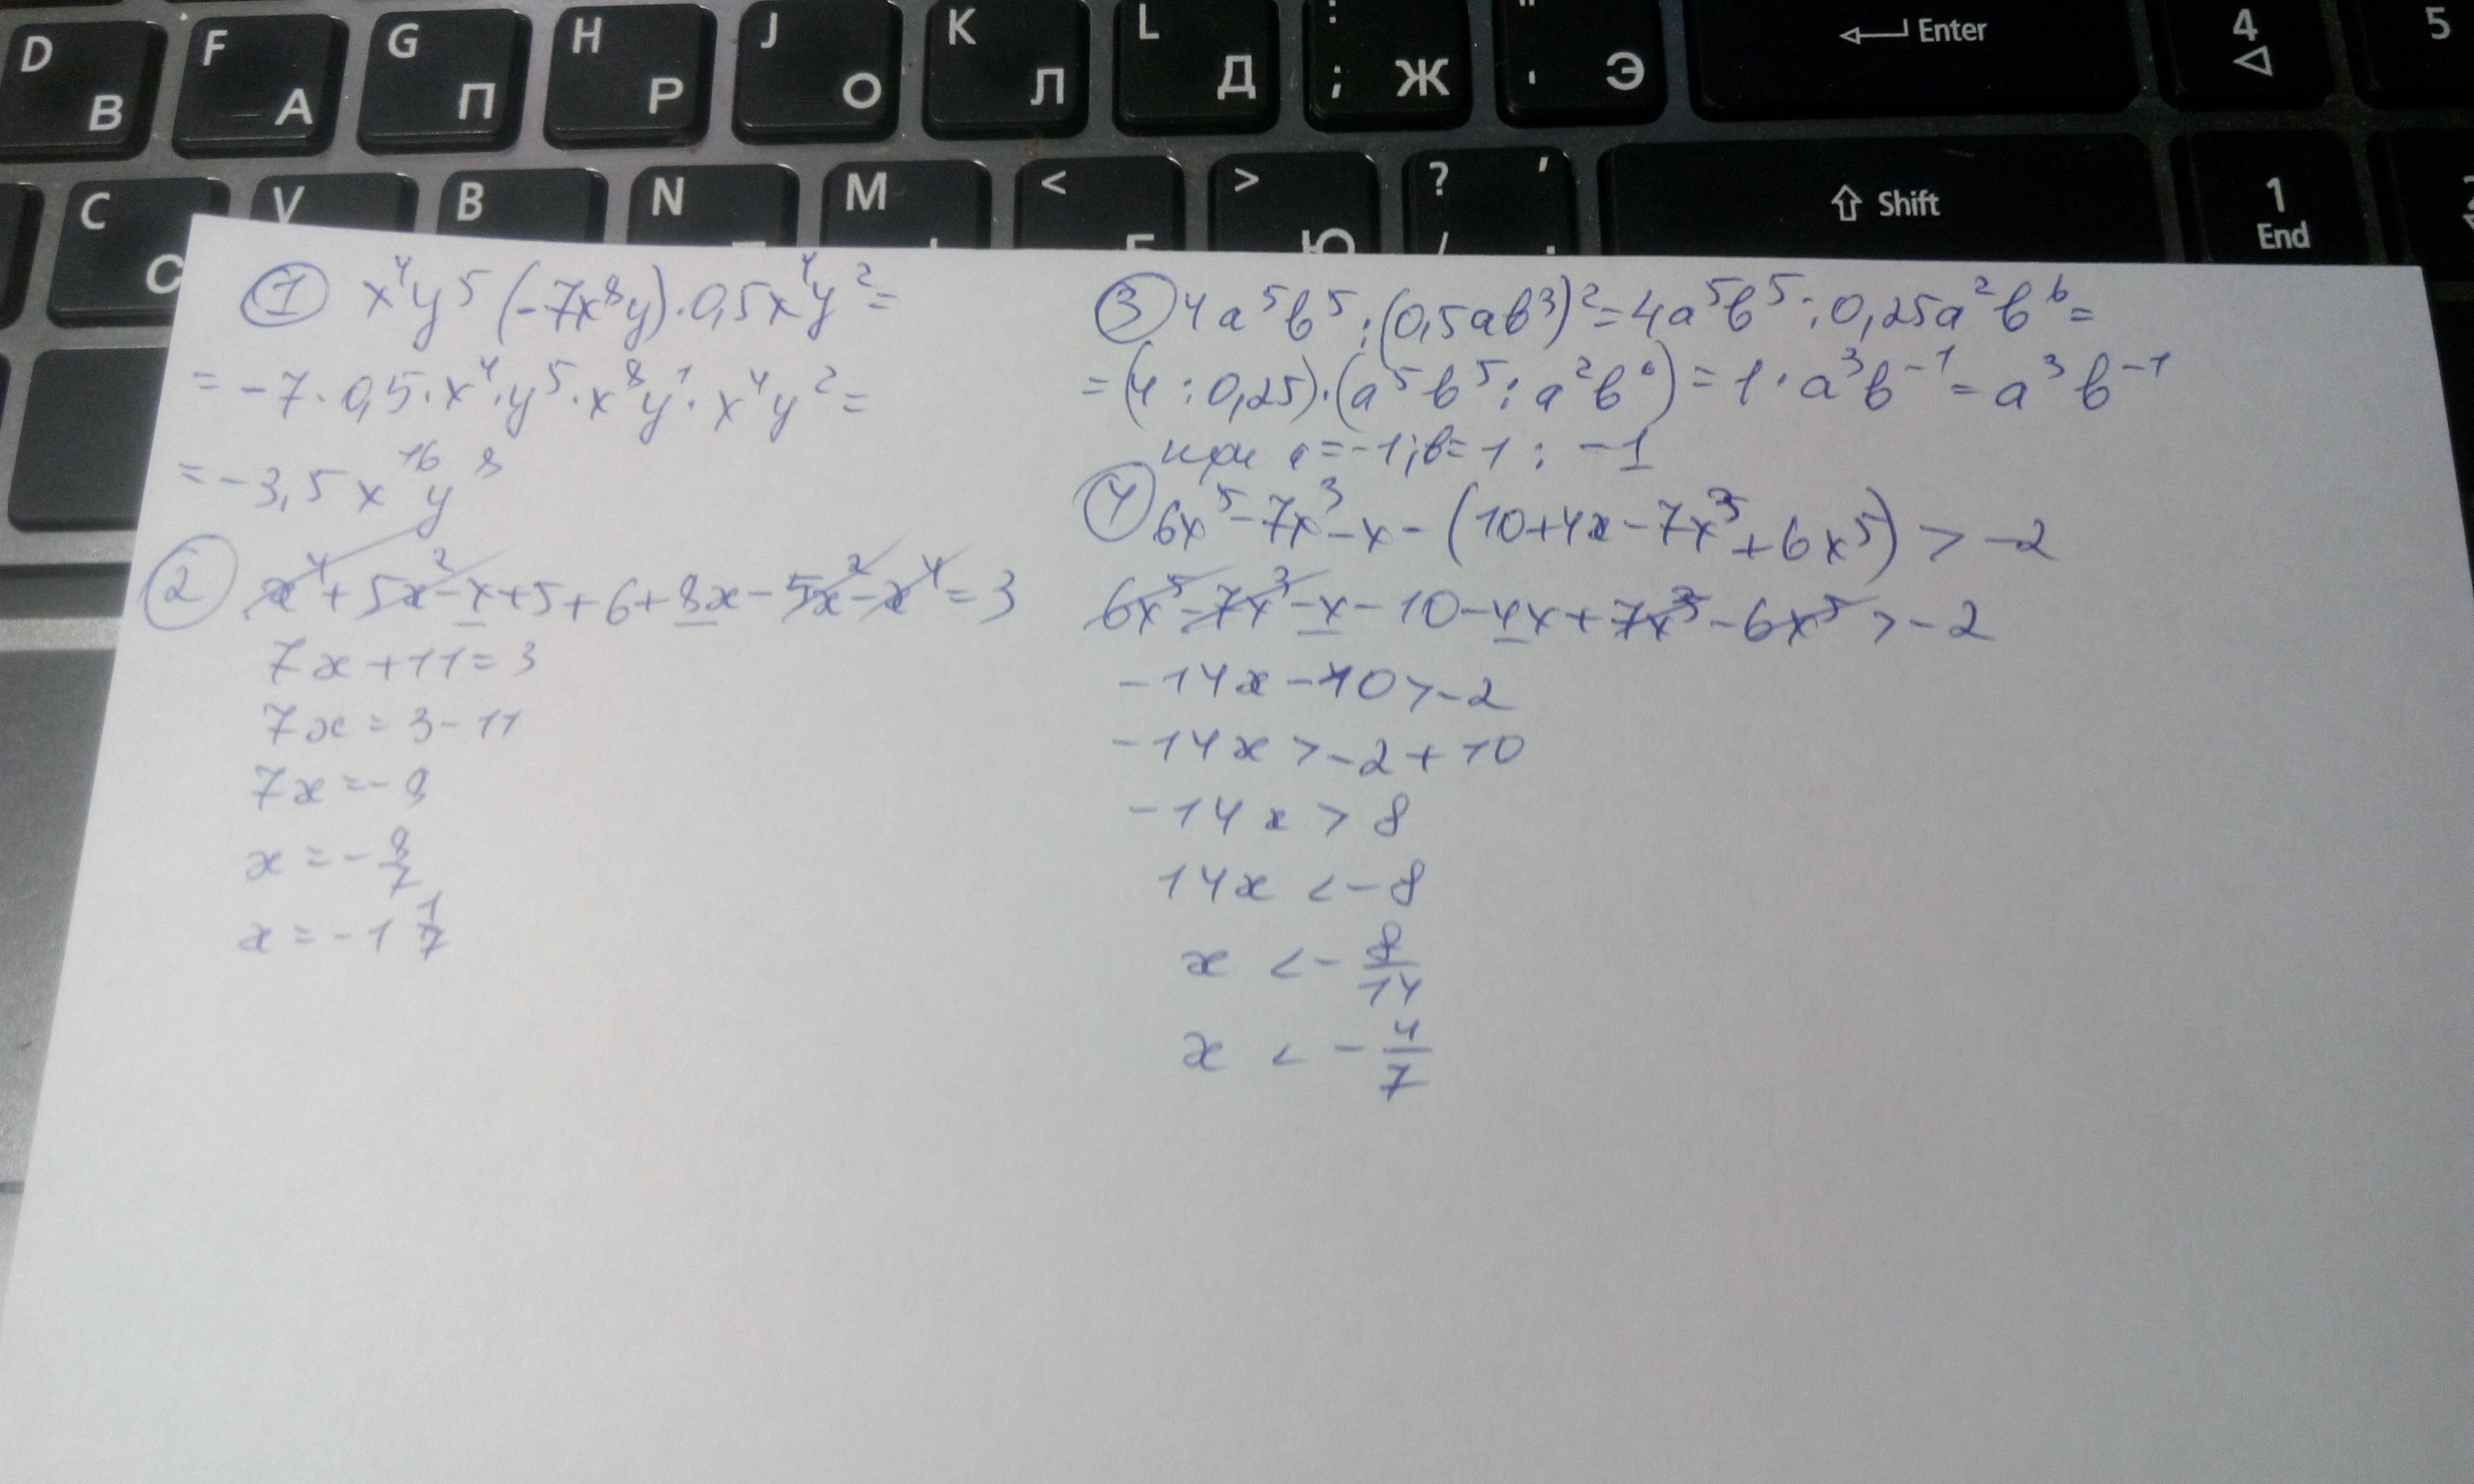 D В F А G П H Р J О K Л L Д : ; Ж " ' Э Enter 4 5
C С V B N M < > Ю ? / ' . Shift 1 End
① x⁴y⁵(-7x⁸y)·0,5x⁴y²=
= -7·0,5·x⁴·y⁵·x⁸y¹·x⁴y²=
= -3,5x¹⁶y⁸
② x⁴+5x²-x+5+6+8x-5x²-x⁴=3
7x+11=3
7x=3-11
7x=-8
x=-8/7
x=-1 1/7
③ 4a⁵b⁵:(0,5ab³)²=4a⁵b⁵:0,25a²b⁶=
=(4:0,25)·(a⁵b⁵:a²b⁶)=1·a³b⁻¹=a³b⁻¹
при a=-1;b=1: -1
④ 6x⁵-7x³-x-(10+4x-7x³+6x⁵)>-2
6x⁵-7x³-x-10-4x+7x³-6x⁵>-2
-14x-10>-2
-14x>-2+10
-14x>8
14x<-8
x<-8/14
x<-4/7